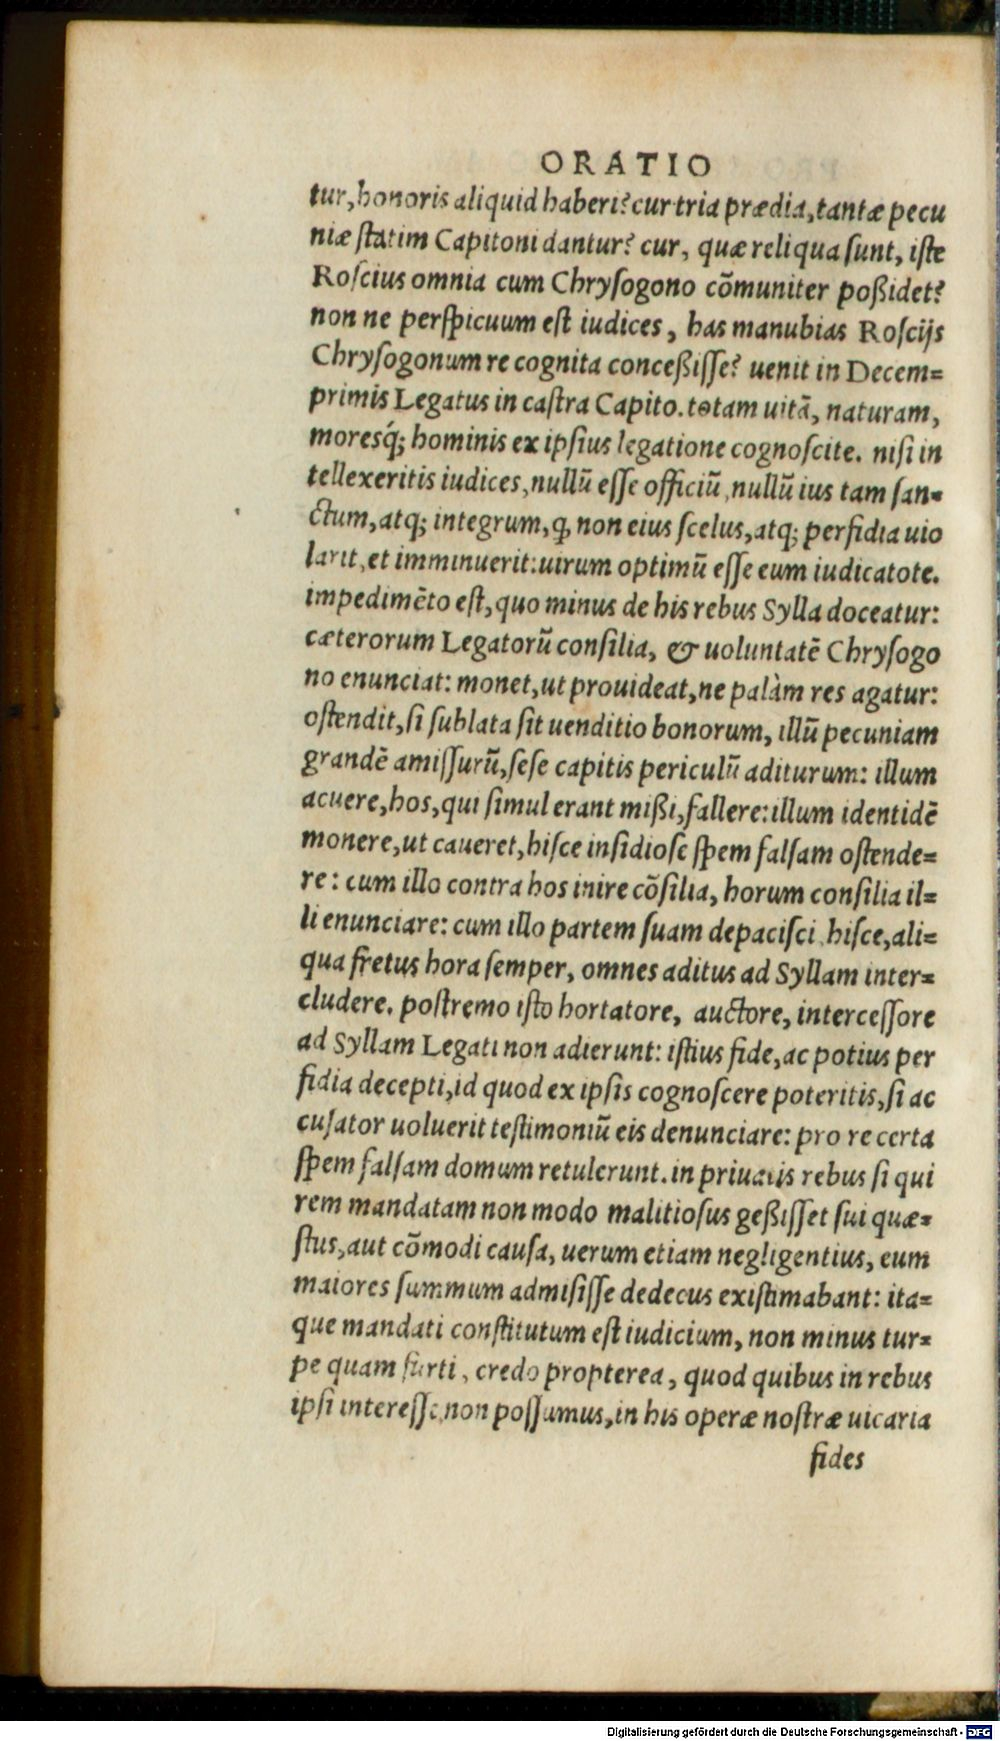 ORATIO
tur, honoris aliquid haberi? cur tria prædia, tantæ pecu
niæ ſtatim Capitoni dantur? cur, quæ reliqua ſunt, iſte
Roſcius omnia cum Chryſogono cõmuniter poßidet?
non ne perſpicuum eſt iudices, has manubias Roſcijs
Chryſogonum re cognita conceßiſſe? uenit in Decem=
primis Legatus in caſtra Capito. totam uitã, naturam,
moresq́; hominis ex ipſius legatione cognoſcite. niſi in
tellexeritis iudices, nullũ eſſe officiũ, nullũ ius tam ſan=
ctum, atq; integrum, ꝙ non eius ſcelus, atq; perfidia uio
larit, et imminuerit: uirum optimũ eſſe eum iudicatote.
impedimẽto eſt, quo minus de his rebus Sylla doceatur:
cæterorum Legatorũ conſilia, & uoluntatẽ Chryſogo
no enunciat: monet, ut prouideat, ne palàm res agatur:
oſtendit, ſi ſublata ſit uenditio bonorum, illũ pecuniam
grandẽ amiſſurũ, ſeſe capitis periculũ aditurum: illum
acuere, hos, qui ſimul erant mißi, fallere: illum identidẽ
monere, ut caueret, hiſce inſidioſe ſpem falſam oſtende=
re: cum illo contra hos inire cõſilia, horum conſilia il=
li enunciare: cum illo partem ſuam depaciſci, hiſce, ali=
qua fretus hora ſemper, omnes aditus ad Syllam inter=
cludere. poſtremo iſto hortatore, auctore, interceſſore
ad Syllam Legati non adierunt: iſtius fide, ac potius per
fidia decepti, id quod ex ipſis cognoſcere poteritis, ſi ac
cuſator uoluerit teſtimoniũ eis denunciare: pro re certa
ſpem falſam domum retulerunt. in priuatis rebus ſi qui
rem mandatam non modo malitioſus geßiſſet ſui quæ=
ſtus, aut cõmodi cauſa, uerum etiam negligentius, eum
maiores ſummum admiſiſſe dedecus exiſtimabant: ita=
que mandati conſtitutum eſt iudicium, non minus tur=
pe quam furti, credo propterea, quod quibus in rebus
ipſi intereſſe, non poſſumus, in his operæ noſtræ uicaria
fides
Digitalisierung gefördert durch die Deutsche Forschungsgemeinschaft - DFG